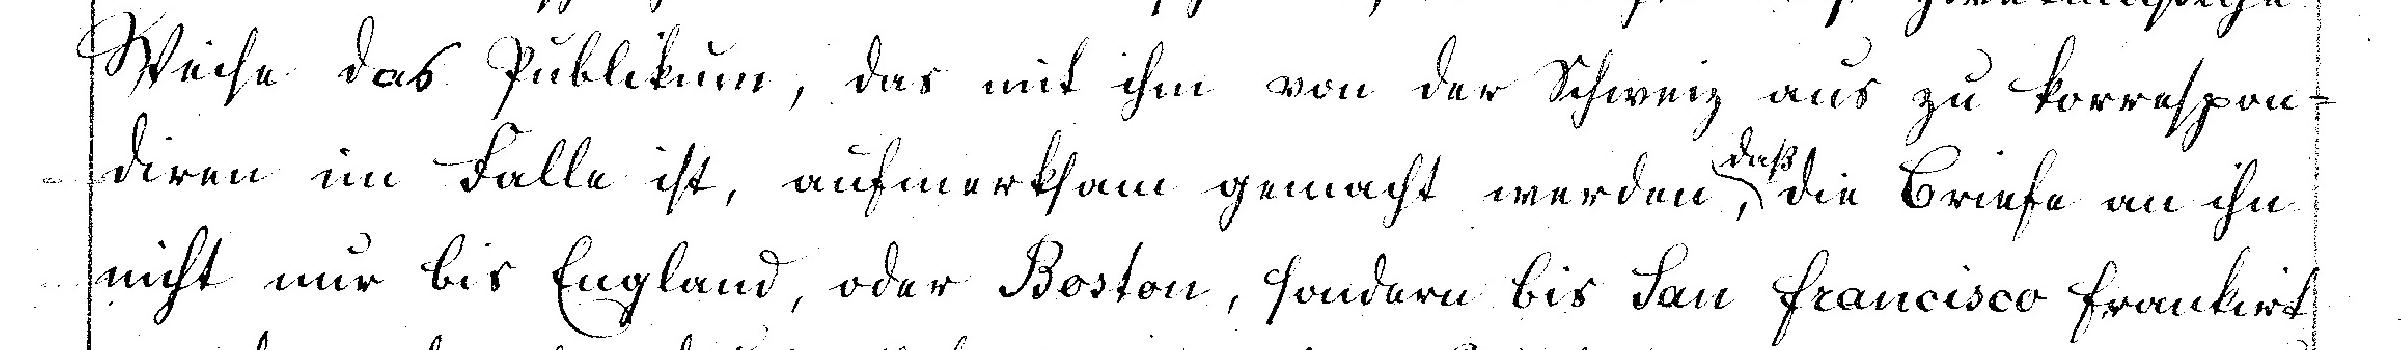 Weise das Publikum, das mit ihm von der Schweiz aus zu korrespon=
diren im Falle ist, aufmerksam gemacht werden, daß die Briefe an ihn
nicht nur bis England, oder Boston, sondern bis San Francisco frankirt